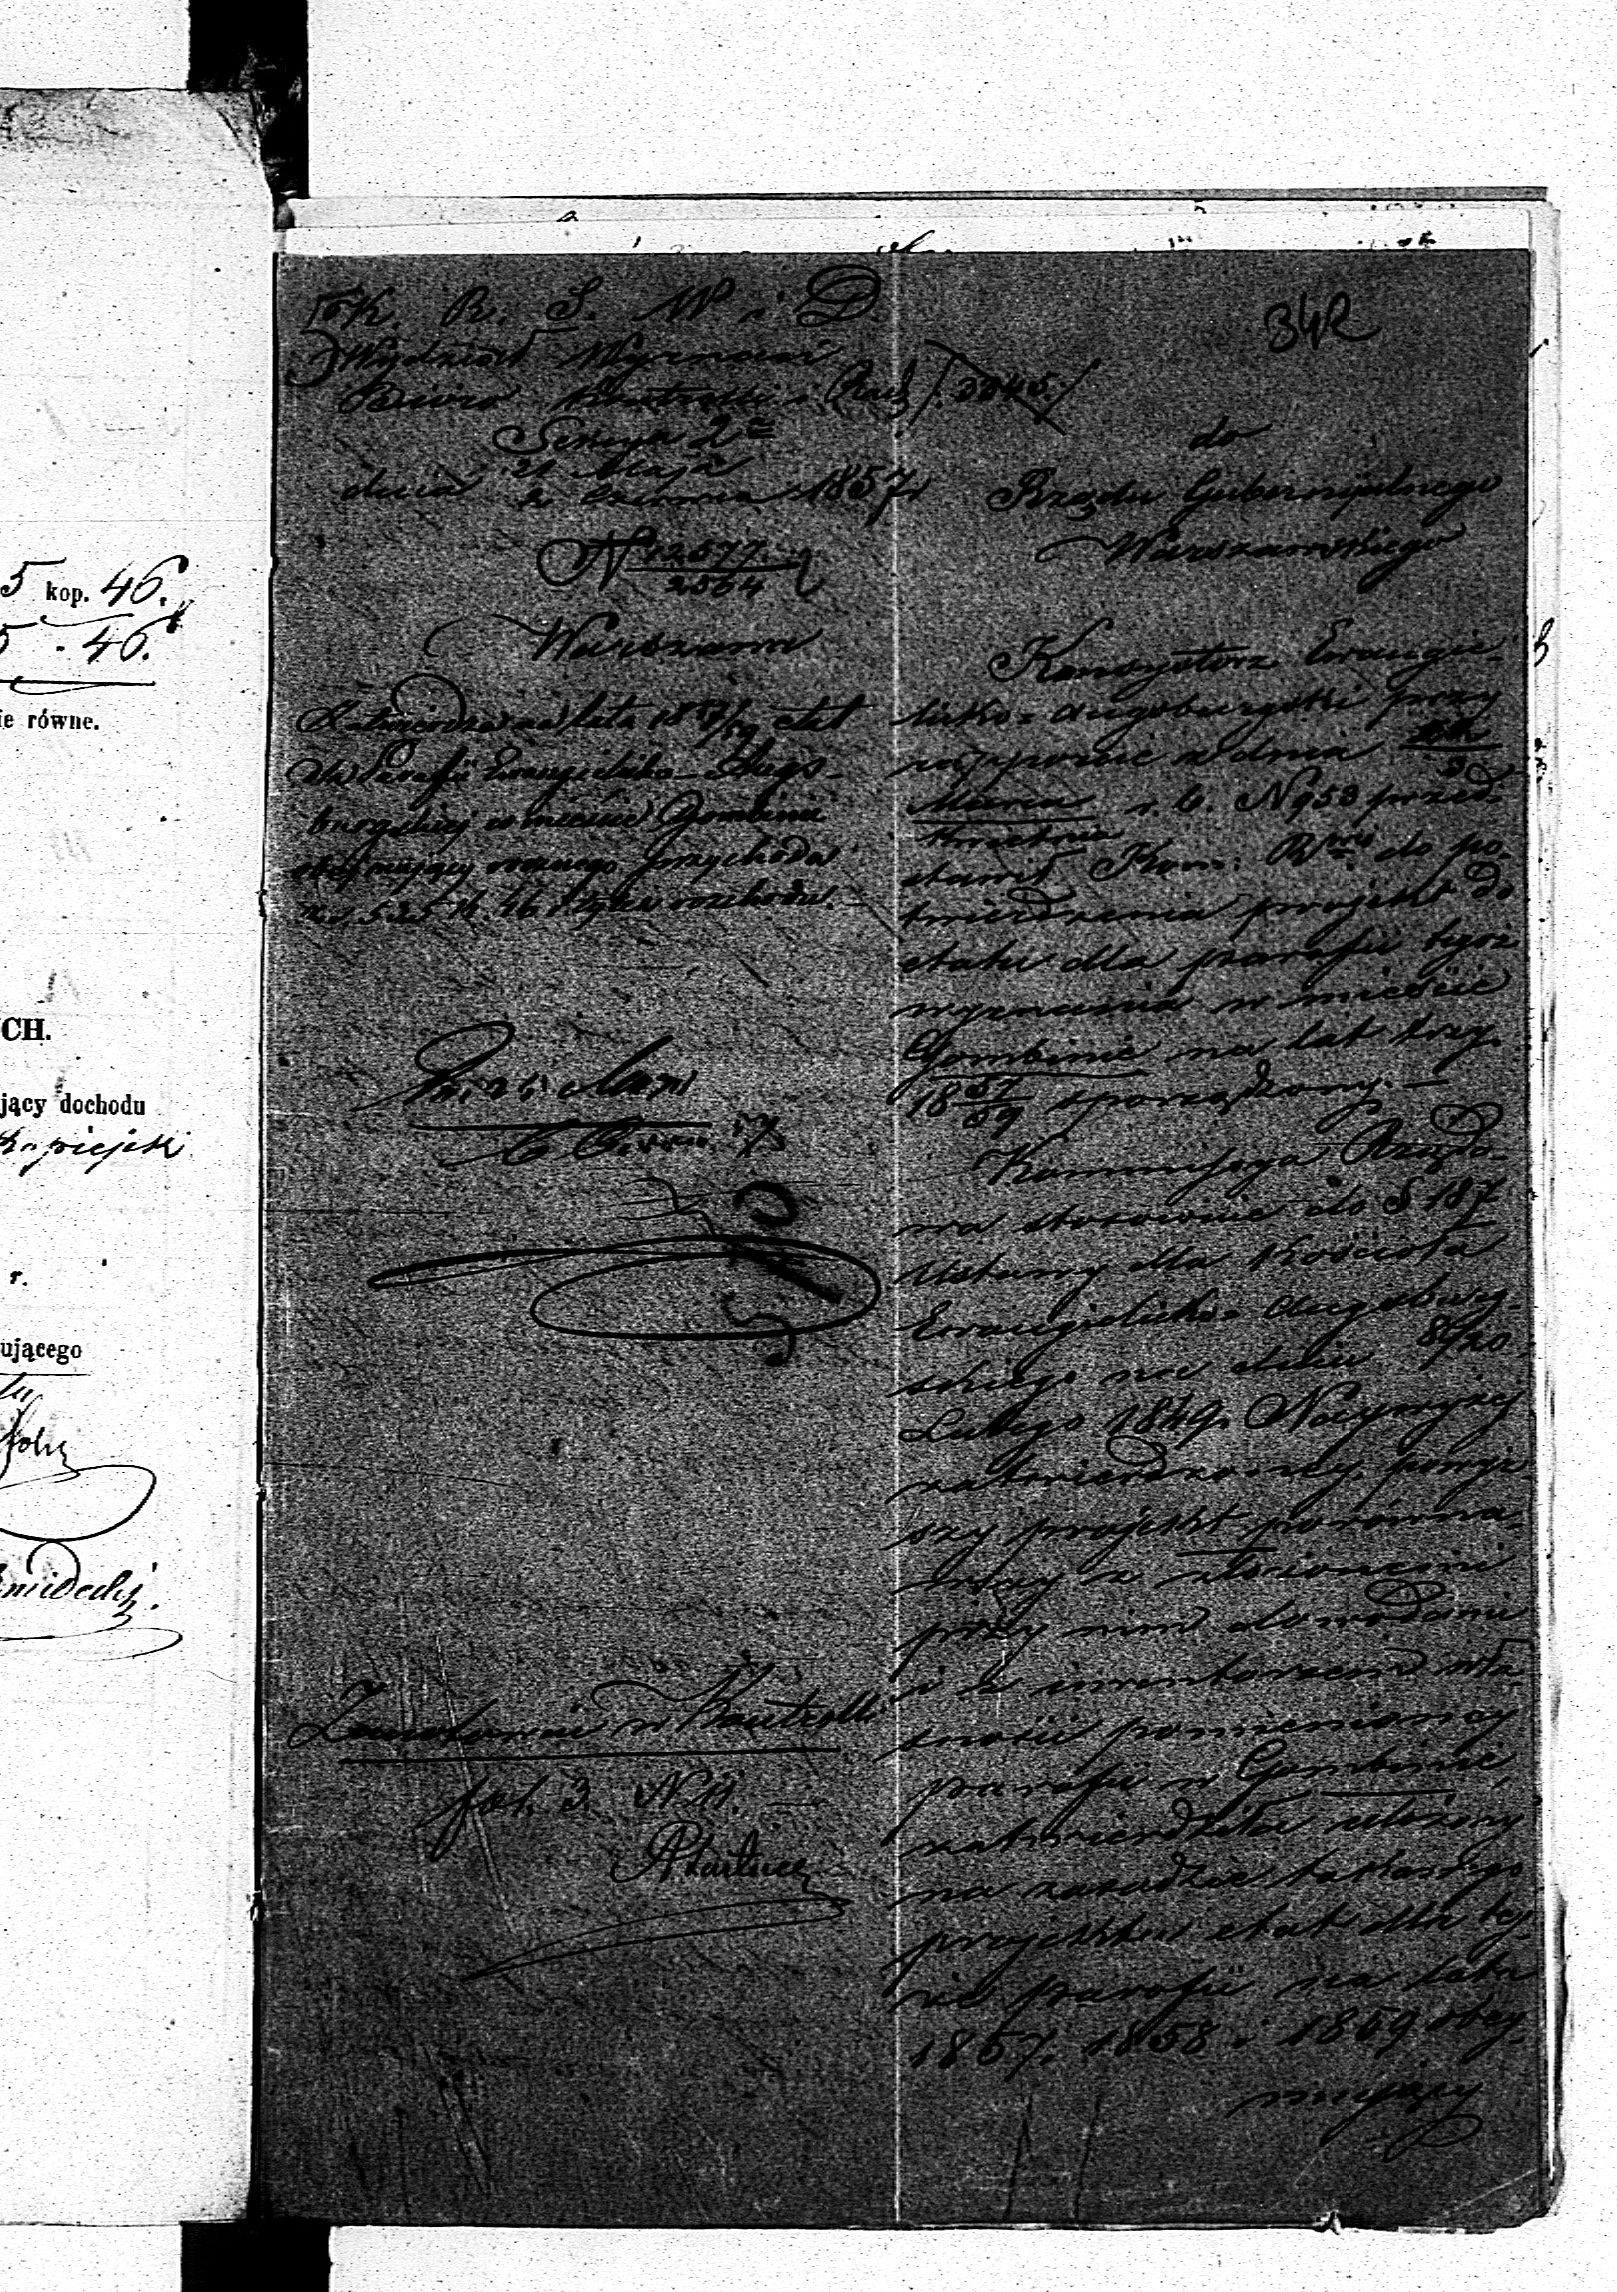 5 kop. 46.
5 . 46.
ie równe.
CH.
jący dochodu
r.
ującego
K. R. S. W. i D.
Wydział Wyznań
Biuro Kontrolli i Rach
Sekcya 2
dnia 21 Maja
2 Czerwca 1857 r
N 12577
2564
Warszawa
Zatwierdza na lata 1857/59 etat
dla Parafii Ewangelicko-Augs-
burgskiej w mieście Gombinie
obejmujący rocznego przychodu
rs. 535 k. 46 i tyleż rozchodu.
Zanotowano w Kontrolli
fol. 3. N 11.
342
3345.
do
Rządu Gubernijalnego
Warszawskiego
Konsystorz Ewangie-
licko-Augsburgski przy
rapporcie z dnia
Marca r. b. N 953 przed-
Kwietnia
stawił Kom: Rwej do po-
twierdzenia projekt do
etatu dla parafii tegoż
wyznania w mieście
Gombinie na lat trzy
18 57/59 sporządzony.
Kommissya Rządo-
wa stosownie do § 187
Ustawy dla Kościoła
Ewangielicko-Augsburg-
skiego na dniu 8/20
Lutego 1849 r. Najwyżej
zatwierdzonej, powyż-
szy projekt porówna-
wszy z złożonemi
przy nim dowodami
i z inwentarzem wła-
sności pomienionej
parafii w Gombinie,
zatwierdziła ułożony
na zasadzie takowego
projektu etat dla tej-
że parafii na lata
1857, 1858 i 1859 obej-
mujący